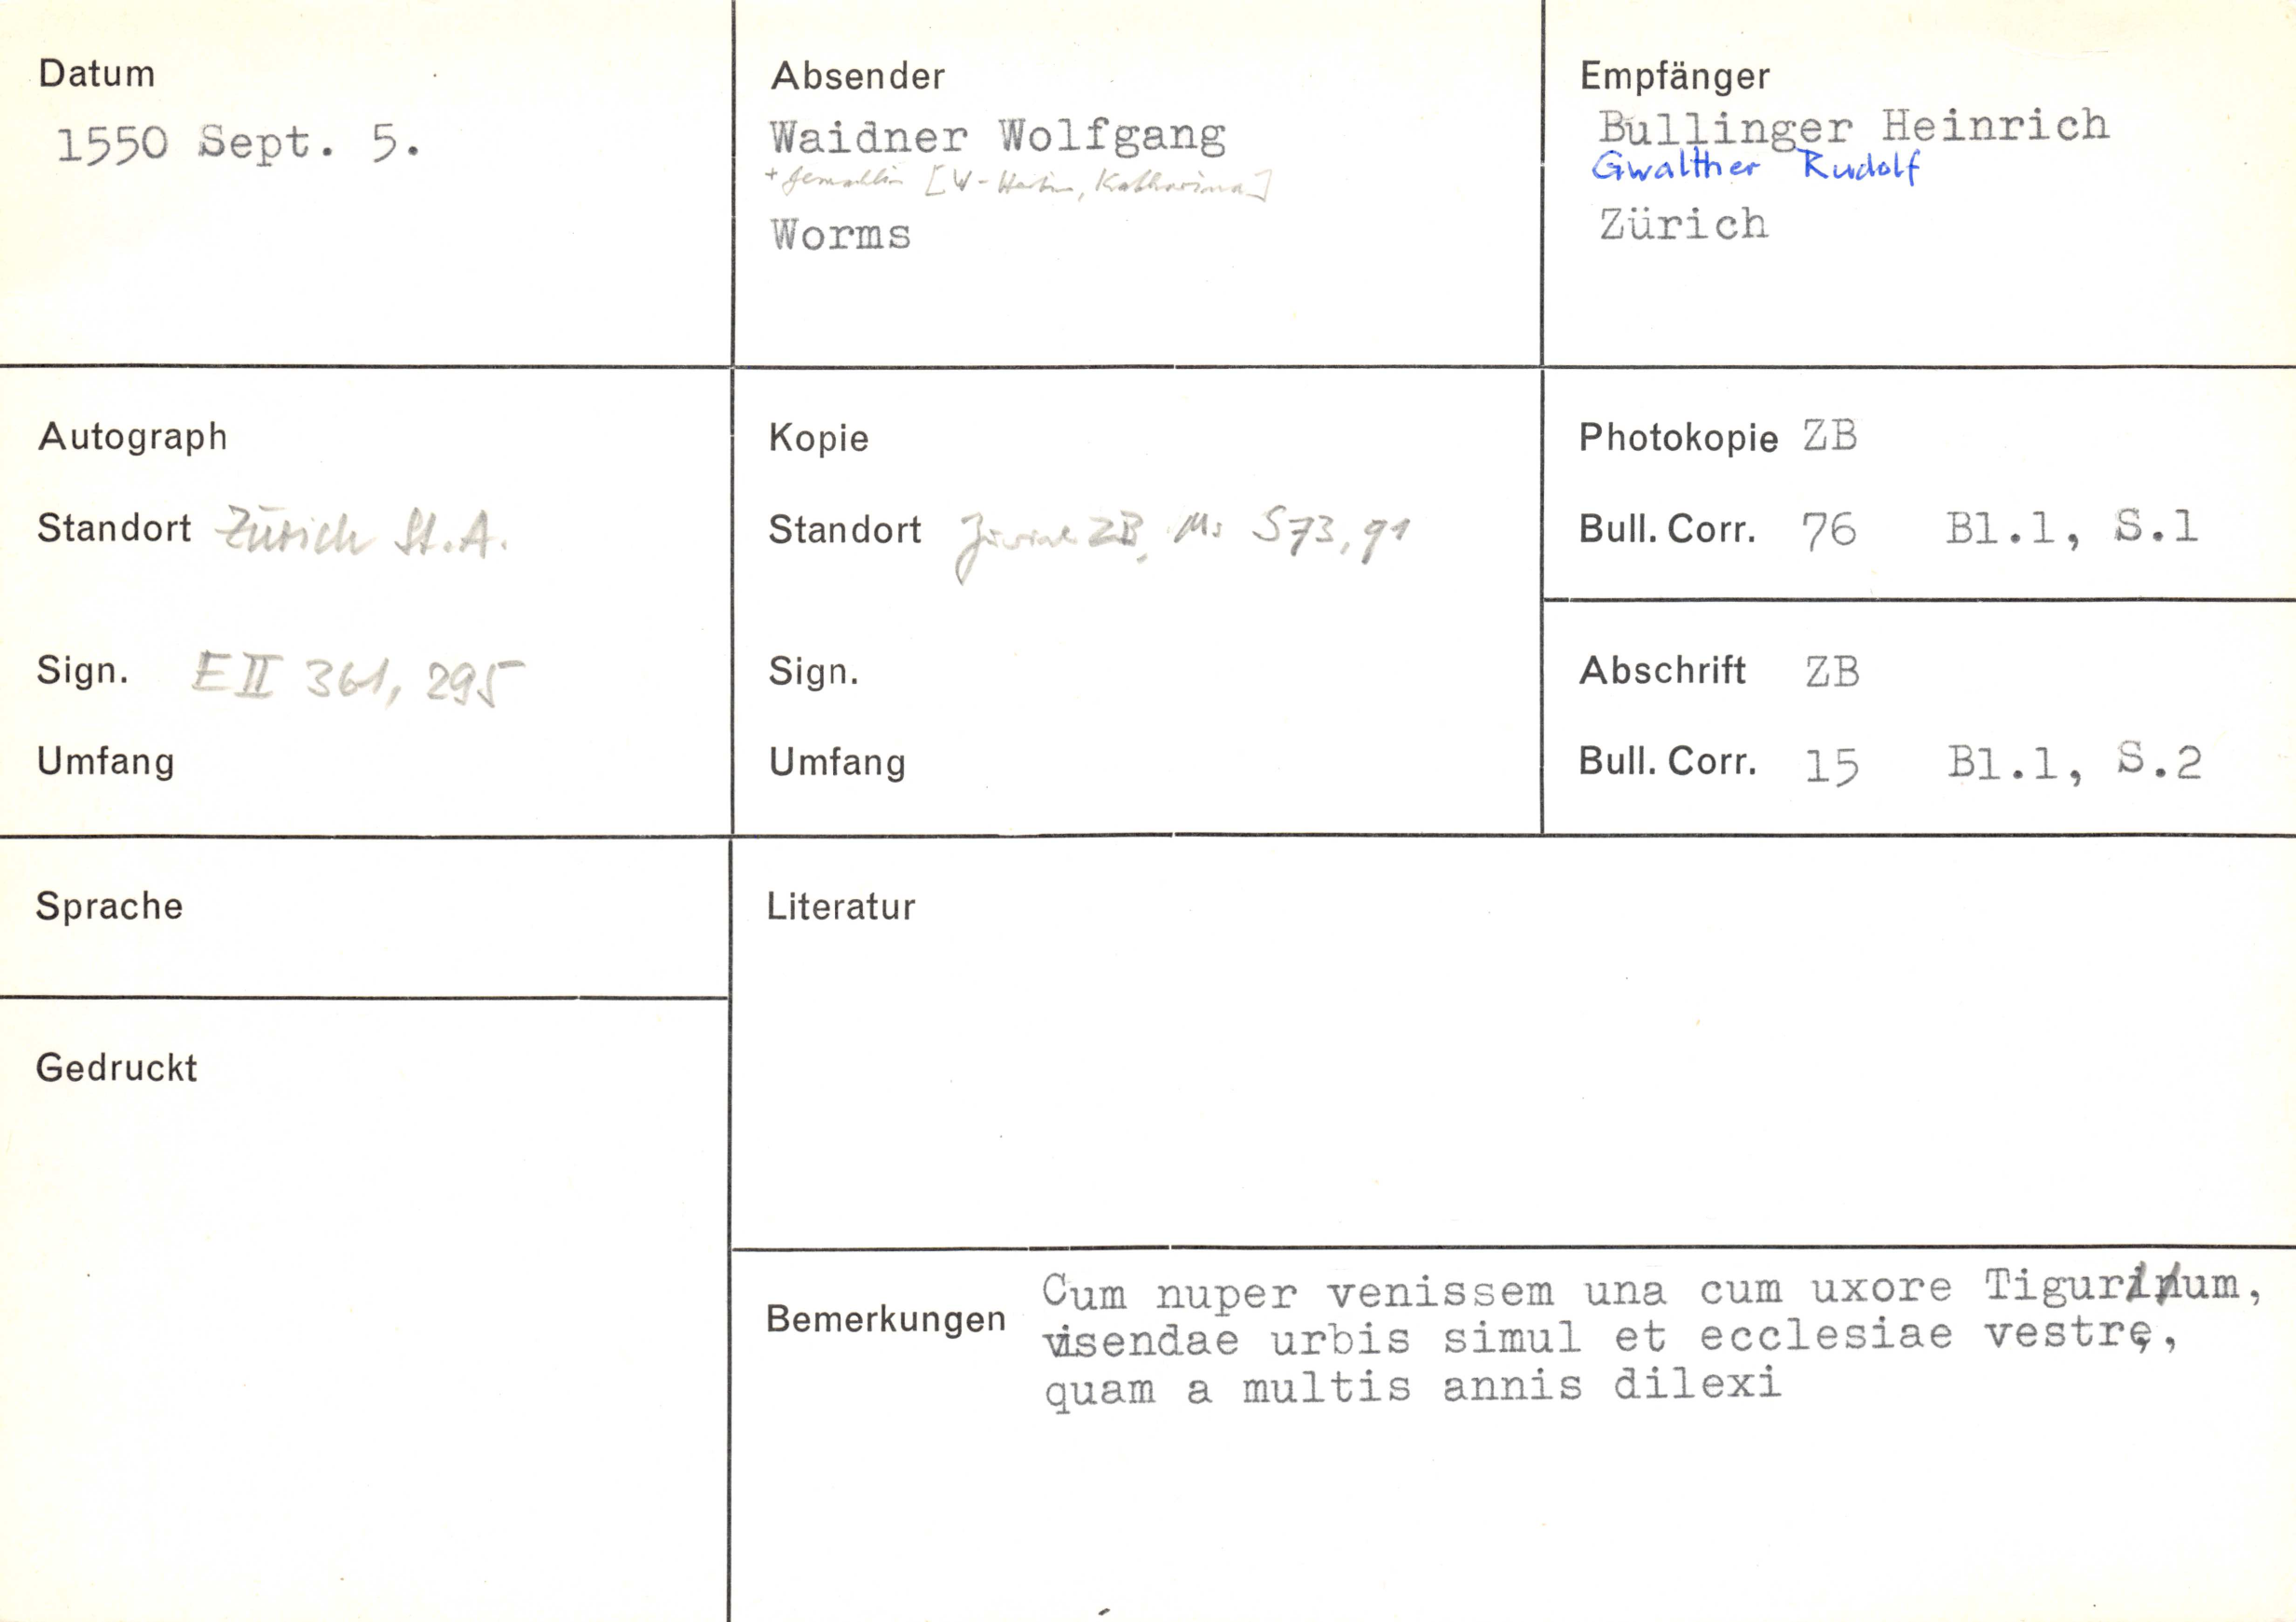 Datum
1550 Sept. 5.
Absender
Waidner Wolfgang
+ Gemahlin [W- , Katharina]
Worms
Empfänger
Bullinger Heinrich
Gwalther Rudolf
Zürich
Autograph
Standort Zürich St.A.
Sign. E II 361, 295
Umfang
Kopie
Standort Zürich ZB, Ms S73, 91
Sign.
Umfang
Photokopie ZB
Bull. Corr. 76 Bl.1, S.1
Abschrift ZB
Bull. Corr. 15 Bl.1, S.2
Sprache
Gedruckt
Literatur
Bemerkungen Cum nuper venissem una cum uxore Tigurinum,
visendae urbis simul et ecclesiae vestrę,
quam a multis annis dilexi